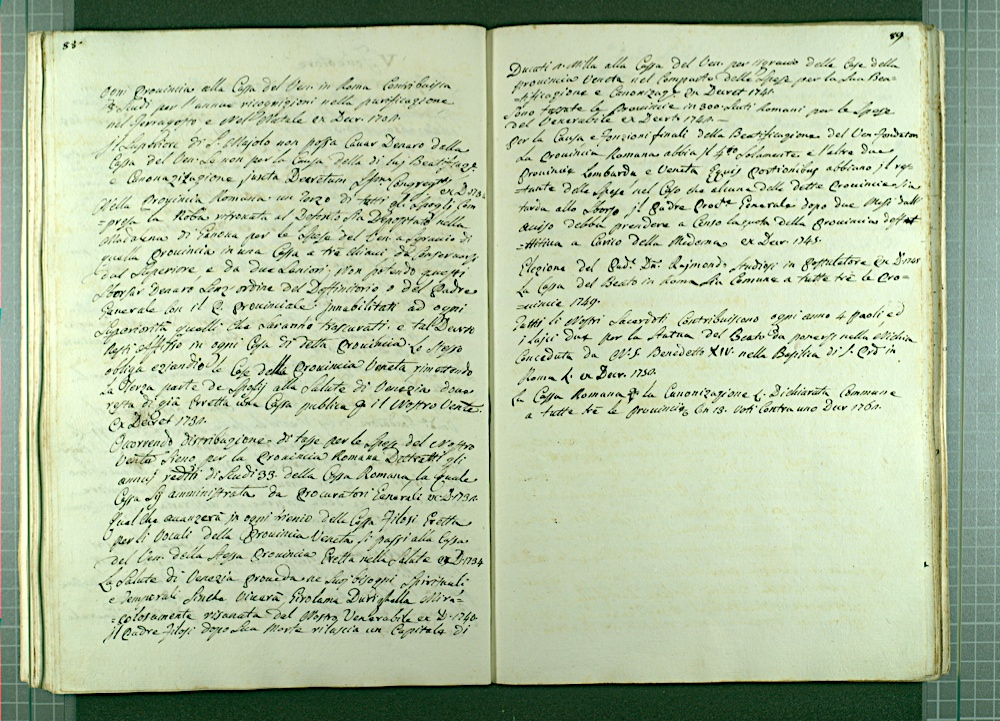 88
ogni Provincia alla Cassa del Ven: in Roma Contribuisca
Scudi per l'annue ricognizioni nella purificazione
nel Ferragosto e Nel Natale ex Decr. 1701.
Il Superiore di S. Majolo non possa Cavar Denaro dalla
Cassa del Ven: Se non per la Causa della di lui Beatificaz.e
e Canonazizazione juxta Decretum Congreg.is ex D. 1734
Nella Provincia Romana un Terzo di tutti gli Spogli, Com
presa la Roba ritrovata al Defonto, Sia Depositato nella
Madalena di Genova per le Spese del Ven: a Sgravio di
quella Provincia in una Cassa a tre chiavi, da
dal Superiore e da due Seniori, Non potendo questi
Sborsar Denaro Senz'ordine del Deffinitorio o del Padre
Generale Con il P. Provinciale: innabilitati ad ogni
Superiorità quelli che Saranno trascurati. e tal Decreto
resti affisso in ogni Casa di detta Provincia. Lo Stesso
obliga eziandio le Case della Provincia Veneta rimettendo
la Terza parte de Spogli alla Salute di Venezia dove
resta di già Eretta una Cassa publica p il Nostro Vente.
Ex Decret 1734.
Occorrendo distribuzione di tasse per le Spese del Nostro
Ven.e Sieno per la Provincia Romana Detratti gli
annui redditi di Scudi 33. della Cassa Romana, la quale
Cassa Sij amministrata da Procuratori Generali ex D. 1734.
Qual che avanzerà in ogni trienio della Cassa Filosi Eretta
per li Vocali della Provincia Veneta si passi alla Cassa
del Ven: della Stessa Provincia Eretta nella Salute ex D. 1734
La Salute di Venezia proveda ne Suoi bisogni Spirituali
e Temporali Sinche viverà Girolama Durighella Mira-
=colosamente risanata dal Nostro Venerabile ex D. 1740.
Il Padre Filosi dopo Sua Morte rilascia un Capitale di
89
Ducati Milla alla Cassa del Ven: per sgravio delle Case della
Provincia Veneta nel Comparto delle Spese per la Sua Bea-
=tificazione e Canonizaz.e ex Decret 1741.
Sono tassate le Provincie in 300 Scuti Romani per le Spese
del Venerabile ex Decret. 1744.
Per la Causa e Fonzioni finali della Beatificazione del Ven: Fondatore
La Provincia Romana abbia il 4.to Solamente e l'altre due
Provincie Lombarda e Veneta Equis Portionibus abbiano il res
=tante delle Spese nel Caso che alcuna delle dette Provincie Sia
tarda allo Sborso il Padre Proc.re Generale dopo due Mesi dall'
aviso debba prendere a Censo la quota della Provincia
=ttiva a Carico della Medema ex Decr. 1745.
Elezione del Pad.e Dn. Raimondo Studiosi in Postulatore Ex D. 1745
La Cassa del Beato in Roma Sia Comune a tutte trè le Pro-
=vincie 1749.
Tutti li Nostri Sacerdoti Contribuiscono ogni anno 4 Paoli ed
i laici due per la Statua del Beato da ponersi nella Nichia
Conceduta da N.S. Benedetto XIV. nella Basilica di S. Pietro in
Roma ex Decr. 1750.
La Cassa Romana p la Canonizazione è Dichiarata Commune
a tutte trè le Provincie Con 13. Voti Contra uno Decr 1760.